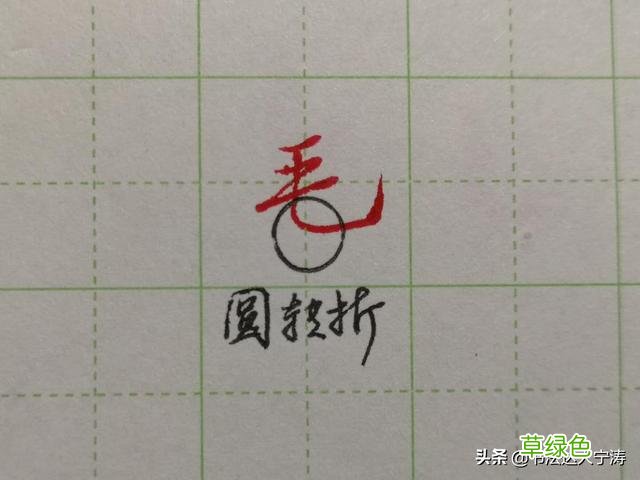 毛
圆转折
草绿色
头条 @书法达人宁涛